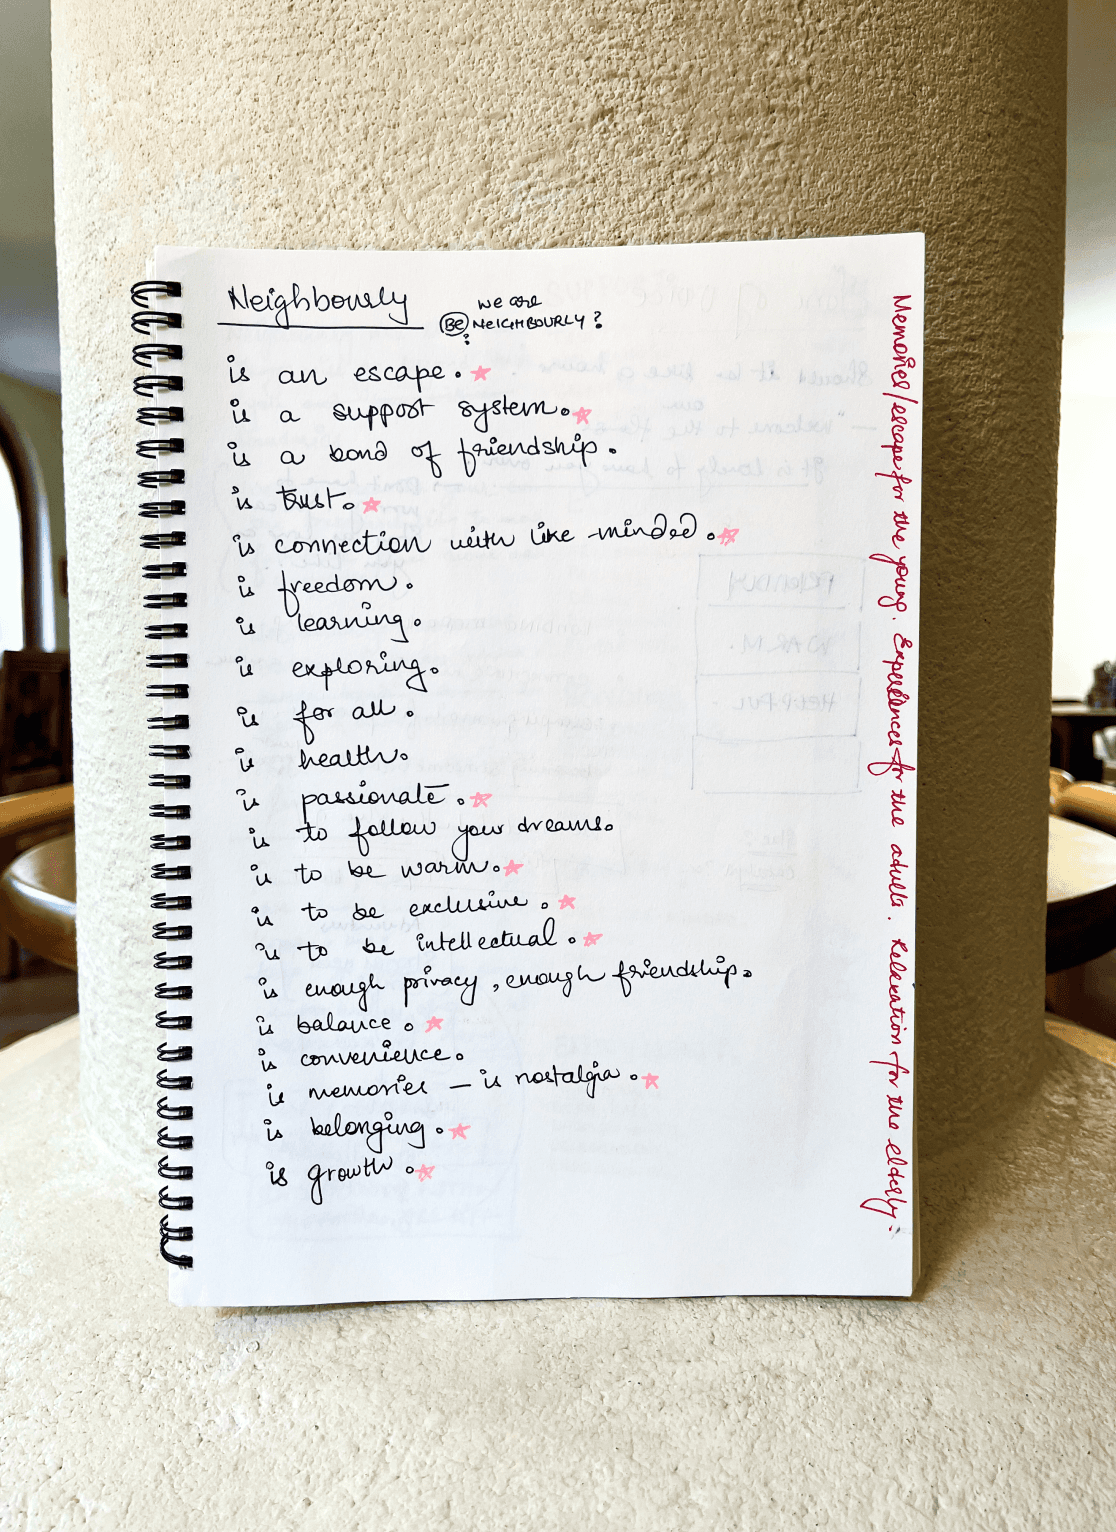 Neighbourly
we are
BE NEIGHBOURLY?
is an escape.
is a support system.
is a bond of friendship.
is trust.
is connection with like-minded.
is freedom.
is learning.
is exploring.
is for all.
is health.
is passionate.
is to follow your dreams.
is to be warm.
is to be exclusive.
is to be intellectual.
is enough privacy, enough friendship.
is balance.
is convenience.
is memories – is nostalgia.
is belonging.
is growth.
Memories/escape for the young. Experiences for the adults. Relaxation for the elderly.
FRIENDLY
WARM.
HELPFUL.